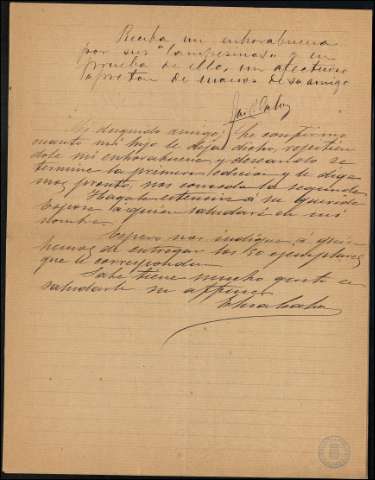 Reciba mi enhorabuena
por sus "Campesinas" y en
prueba de ello, un afectuoso
apretón de manos de su amigo
Mi distinguido amigo; he confirmo
cuanto mi hijo le deja dicho, repitien
dole mi enhorabuena, y deseando se
termine la primera edicion y le diga
mos pronto, nos conceda la segunda.
Hágala estensiva á su querida
esposa á quien saludará en mi
nombre.
Espero nos indique, á quien
hemos de entregar los 50 ejemplares
que le corresponden.
Sabe tiene mucho gusto en
saludarle su affmo